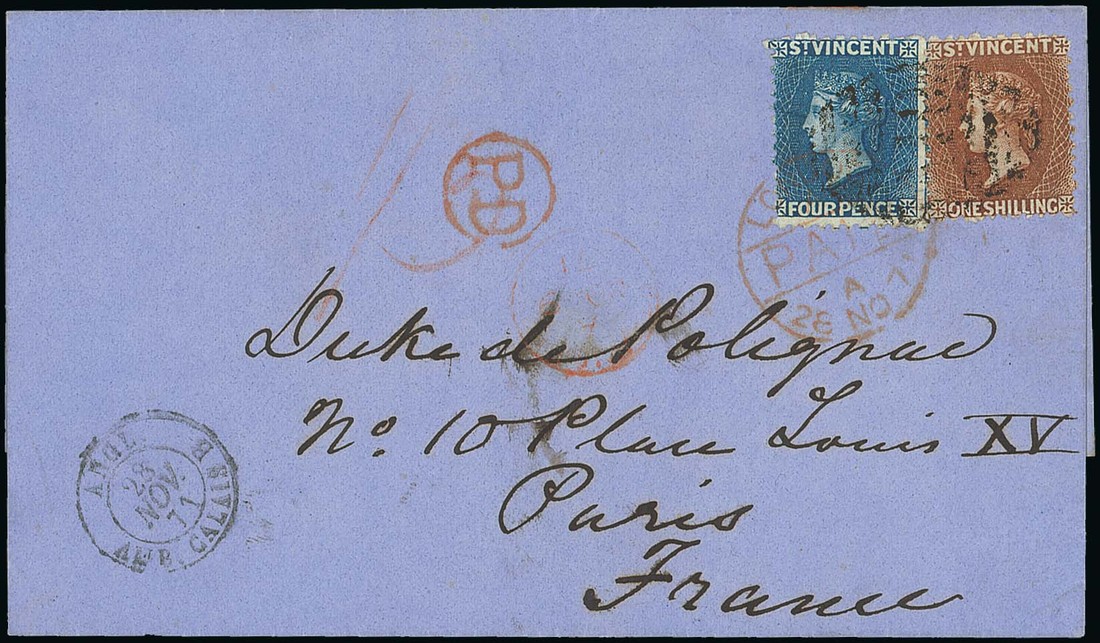 ST VINCENT
FOUR PENCE
ST VINCENT
ONE SHILLING
PD
PAID
A
28 NO 71
Duke de Polignac
No. 10 Place Louis XV
Paris
France
ANGL.
28
NOV.
71
AMB. CALAIS B